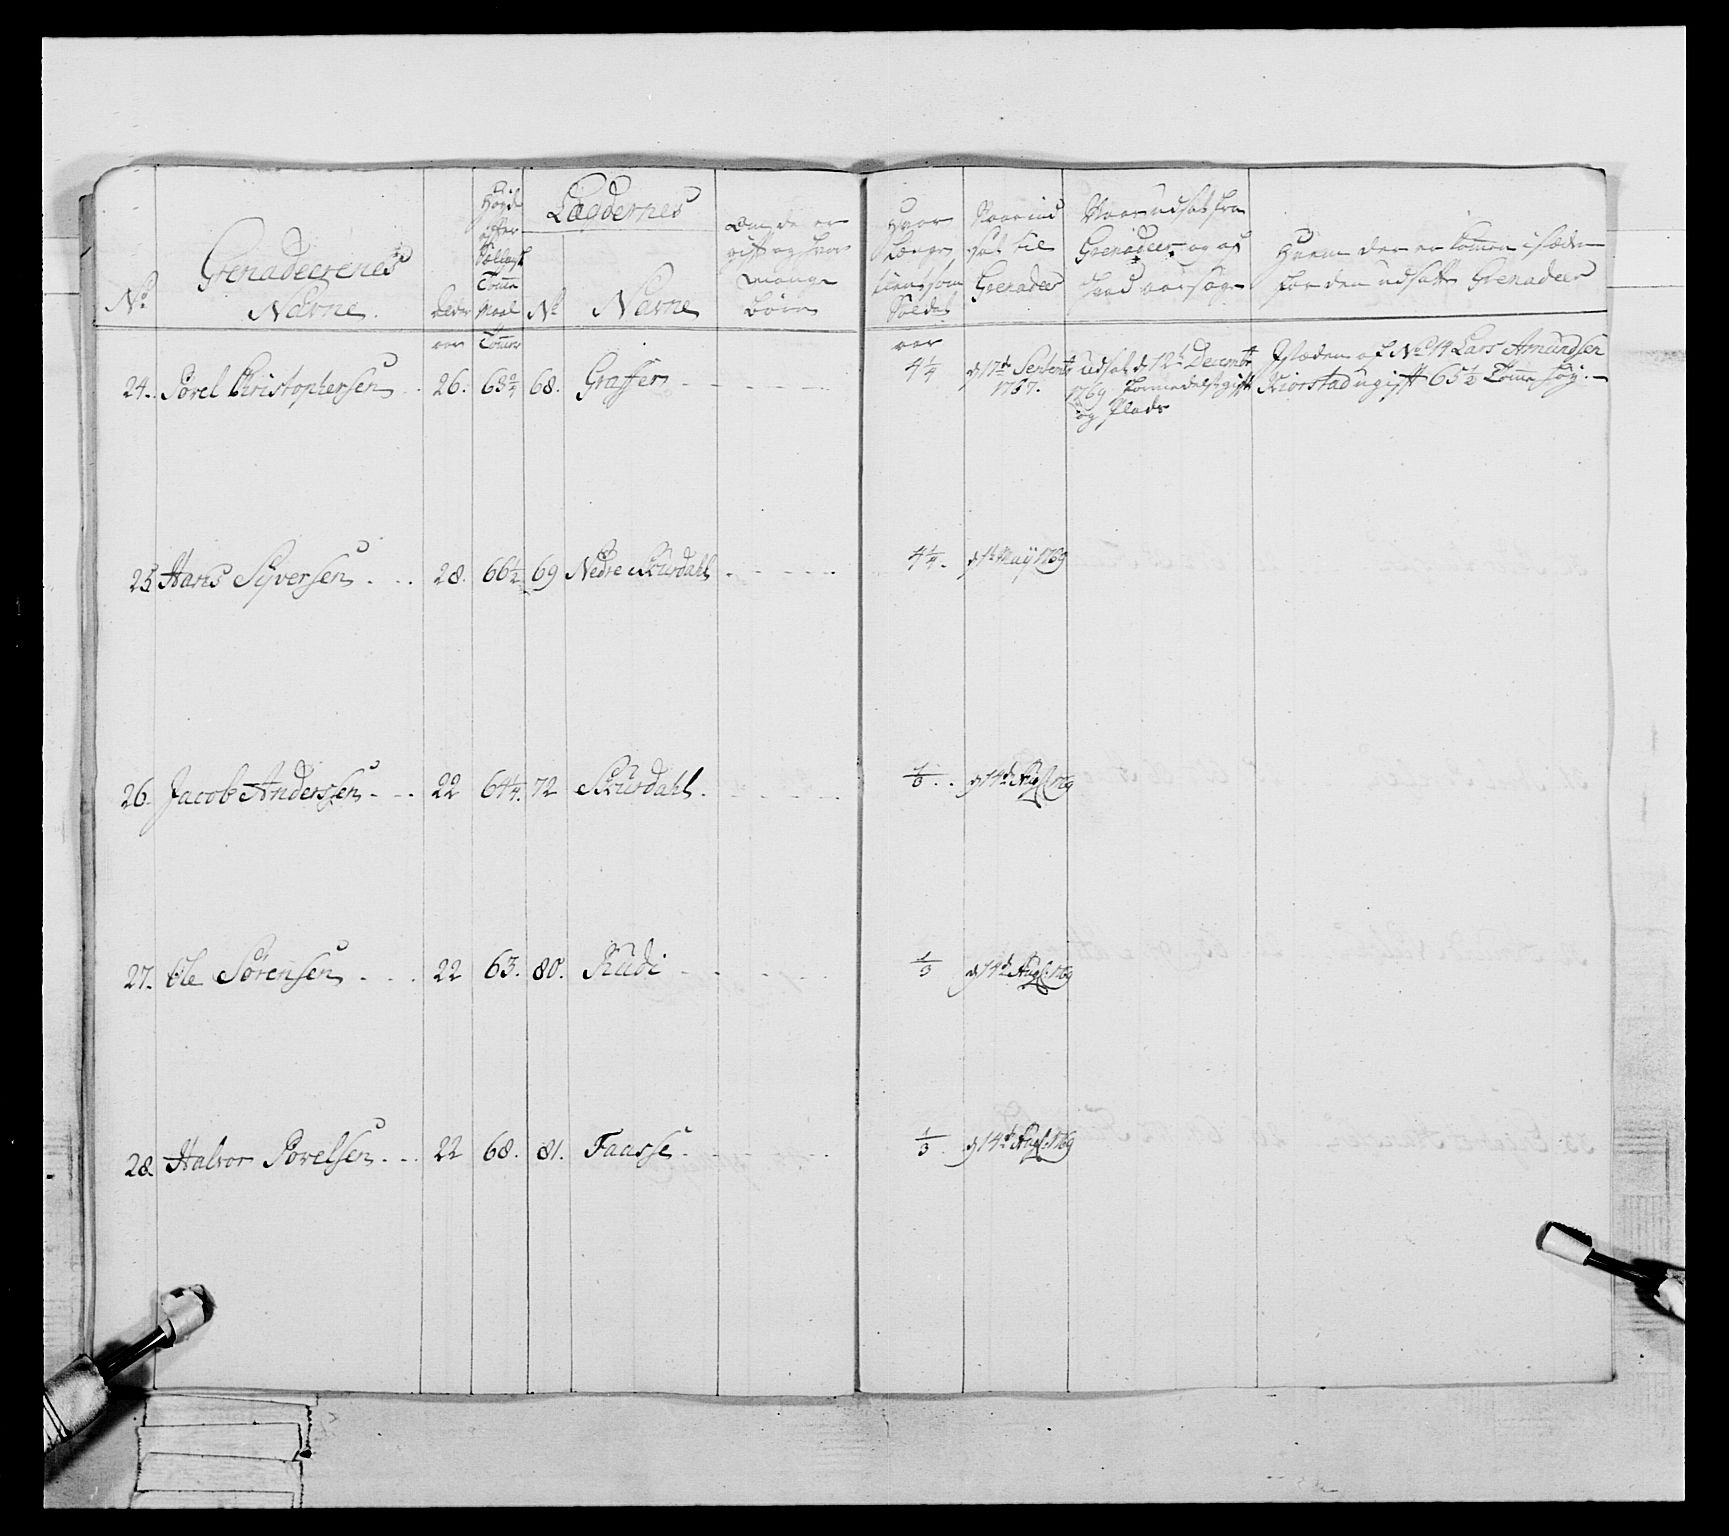 No
Grenadeerenes
Navne.
Alder
aar
Høyde
efter
Tomme
Maal
Tommer
Lægdernes
No
Navne
Om de er
gift og hvor
mange
Børn
Hvor
længe
tient som
Soldat
aar
Naar ind
sat til
Grenadeer
Naar udsat fra
Grenadeer og af
hvad aarsage
Hvem der er kommen i stæden
for den udsatte Grenadeer
24. Povel Christophersen 26. 68 3/4 68. Graffer - - - - 4 1/4 d 17de Septembr 1767. udsat d 12te Decembr
1769 formedelst gift
og Plads
Istæden af No 14 Lars Amundsen
Kiorstad ugift 65 1/2 Tomme høy. -
25 Hans Syversen - - - 28. 66 1/2 69 Nedre Skurdahl - - - - 4 1/4. d 1te May 1769
26. Jacob Anderssen - - - 22 64 1/4. 72 Skurdahl. - - - 1/3. d 14de Aug. 1769
27. Ole Sørensen - - - 22 63. 80. Rudi - - - - 1/3 d 14de Aug. 1769
28. Halvor Povelsen - - - 22 68. 81. Faasse - - - - 1/3. d 14de Aug. 1769